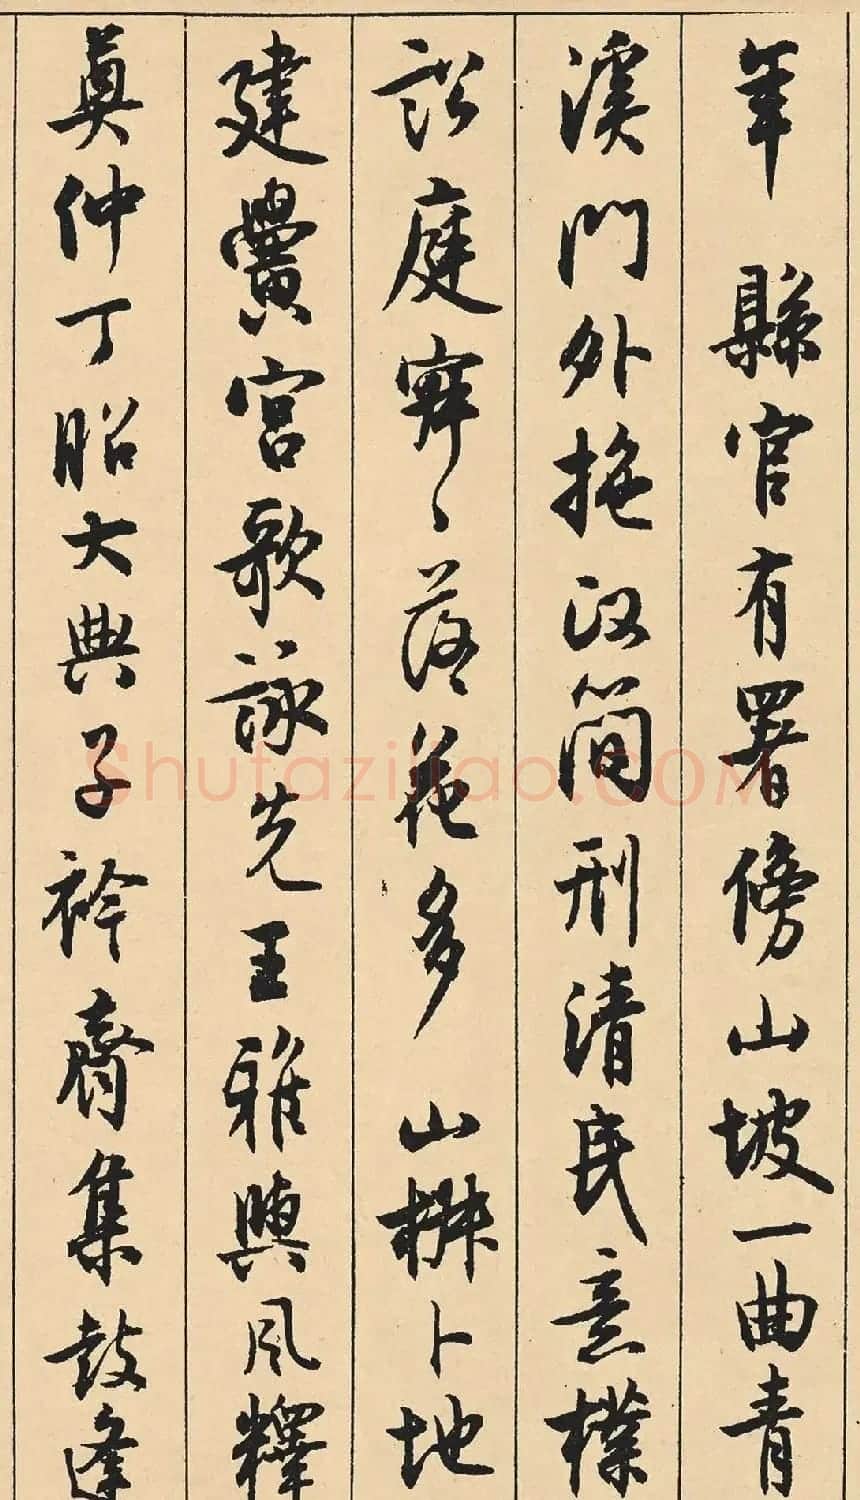 年 縣官有署傍山坡一曲青
溪門外拖政簡刑清民意樸
訟庭寂〻落花多 山麓卜地
建黌宮歌詠先王雅與風釋
奠仲丁昭大典子衿齊集鼓逢
Shufaziliao.COM